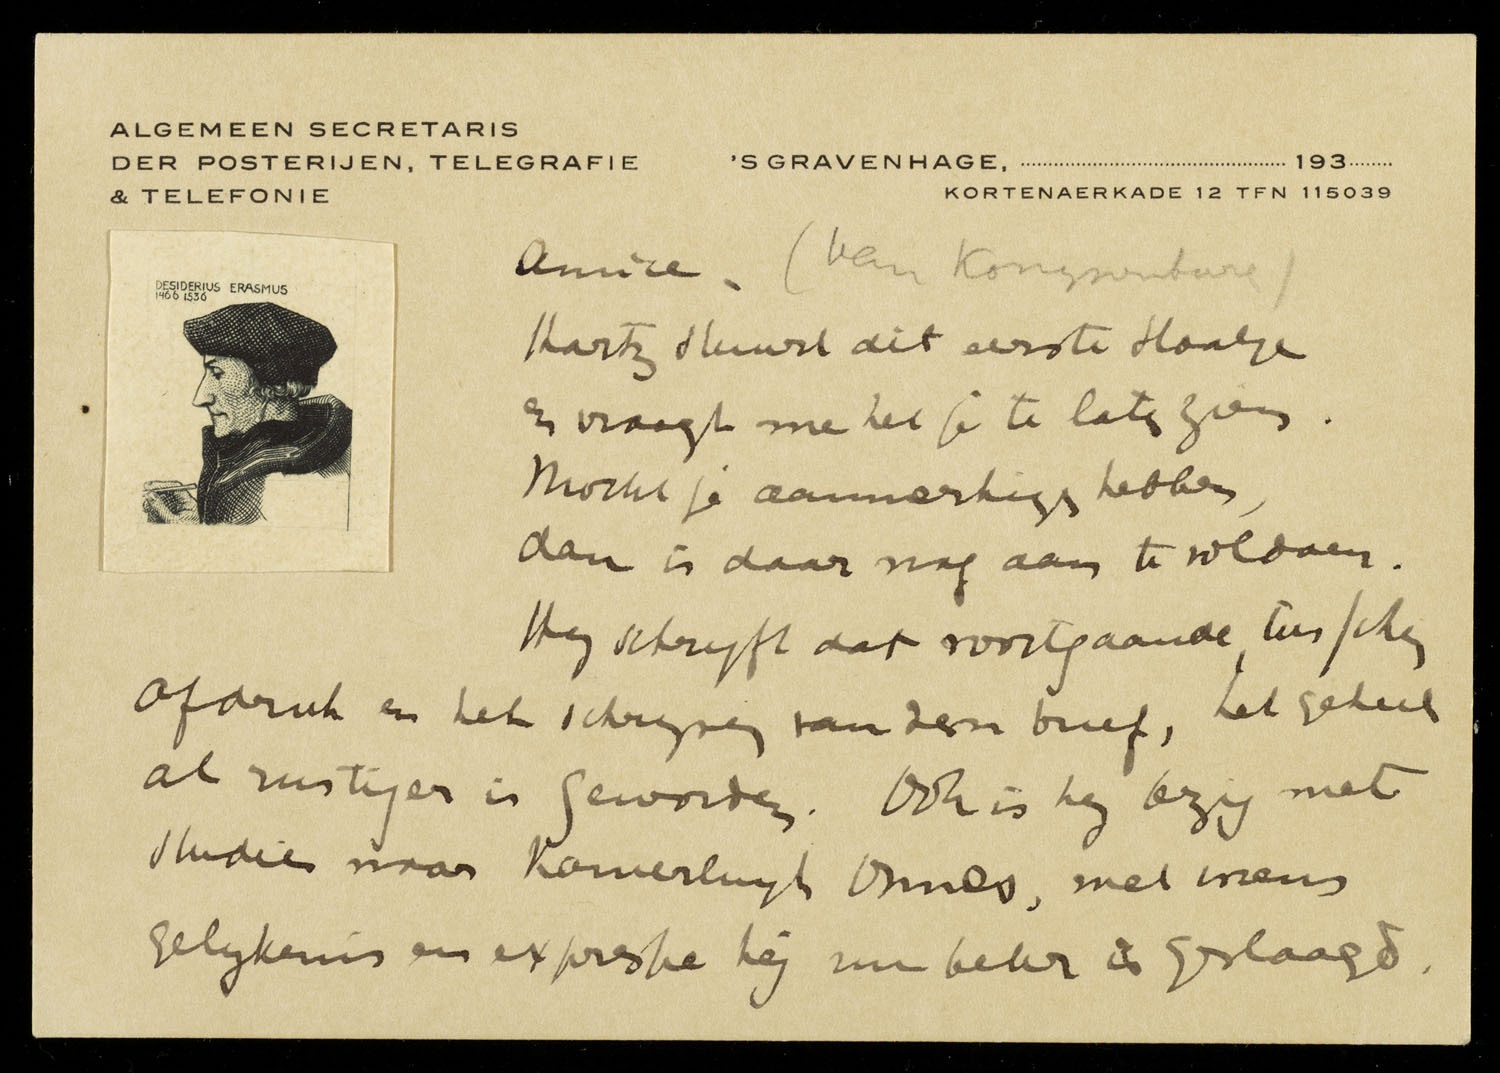 ALGEMEEN SECRETARIS
DER POSTERIJEN, TELEGRAFIE
& TELEFONIE
'S GRAVENHAGE, 193
KORTENAERKADE 12 TFN 115039
DESIDERIUS ERASMUS
1466 1536
Amice, (van
Hartz stuurt dit eerste staatje
en vraagt me het je te laten zien.
Mocht je aanmerkingen hebben,
dan is daar nog aan te voldoen.
Hij schrijft dat voortgaande, tusschen
afdruk en het schrijven van dezen brief, het geheel
al rustiger is geworden. Ook is hij bezig met
studies naar Kamerlingh Onnes, met wiens
gelijkenis en expressie hij nu beter is geslaagd.